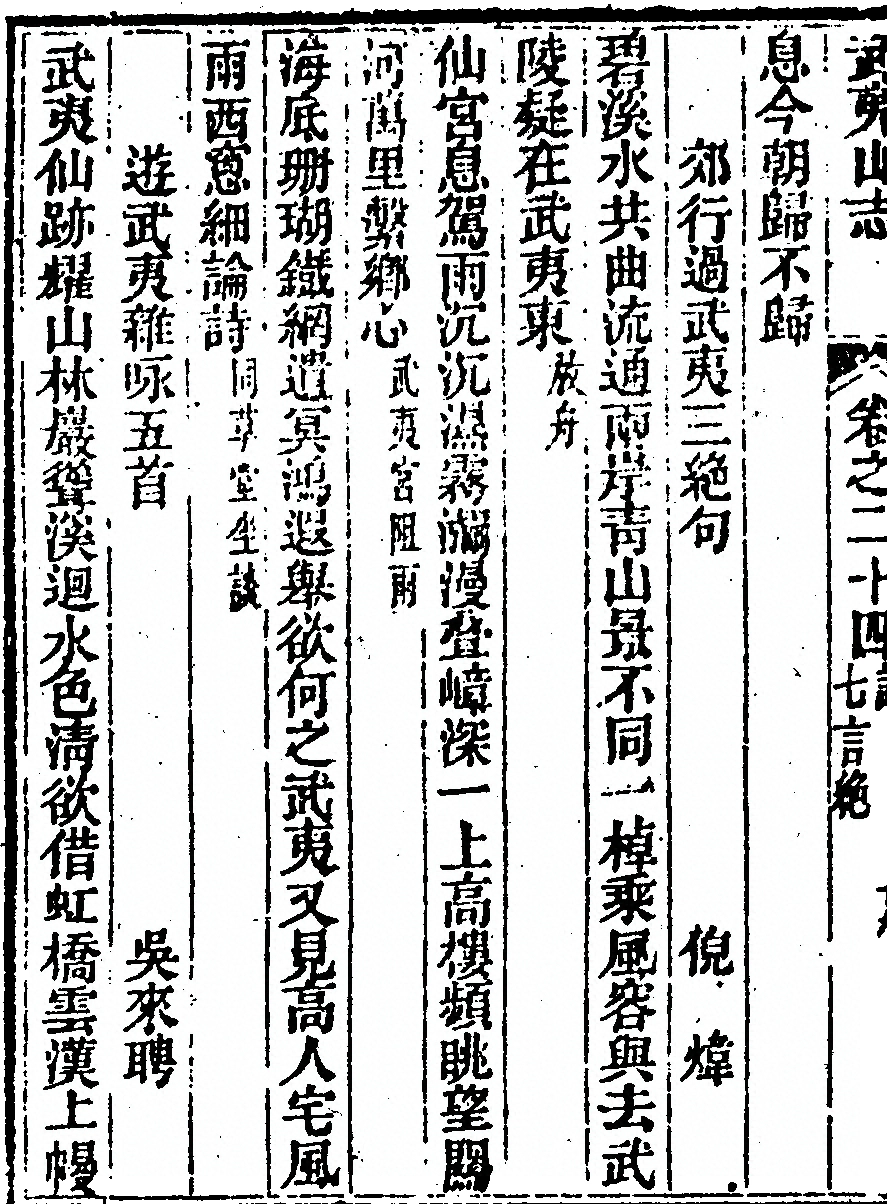 武夷山志 卷之二十四 七言絶
息今朝歸不歸
郊行過武夷三絶句 倪煒
碧溪水共曲流通兩岸青山景不同一棹乘風容與去武
陵疑在武夷東 放舟
仙宮息駕雨沉沉濕霧瀰漫疊嶂深一上高樓頻眺望關
河萬里繫鄉心 武夷宮阻雨
海底珊瑚鐵網遺冥鴻遐舉欲何之武夷又見高人宅風
雨西窓細論詩 同草堂坐談
遊武夷雜咏五首 吳來聘
武夷仙跡耀山林巖聳溪迴水色清欲借虹橋雲漢上幔